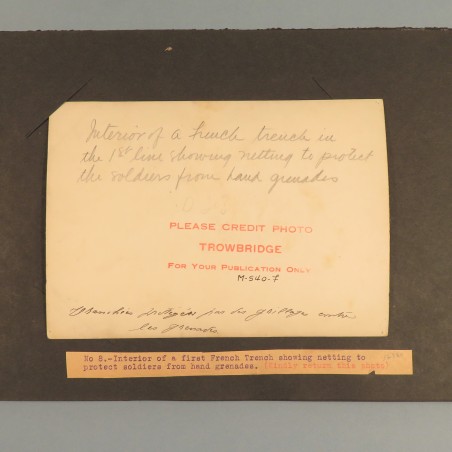 Interior of a French trench in
the 1st line showing netting to protect
the soldiers from hand grenades
PLEASE CREDIT PHOTO
TROWBRIDGE
FOR YOUR PUBLICATION ONLY
M-540-7
protégées par des grillages contre
les grenades
No 8.-Interior of a first French Trench showing netting to
protect soldiers from hand grenades. (Kindly return this photo)